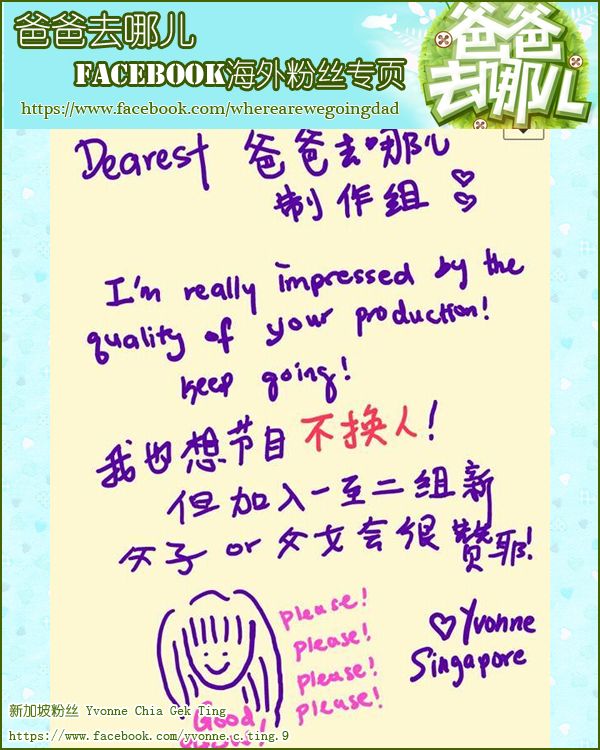 爸爸去哪儿
FACEBOOK海外粉丝专页
https://www.facebook.com/wherearewegoingdad
爸爸
去哪儿
Dearest 爸爸去哪儿
制作组
I'm really impressed by the
quality of your production!
Keep going!
我也想节目不换人!
但加入一至二组新
父子 or 父女会很赞耶!
please!
please!
please!
please!
Yvonne
Singapore
Good
新加坡粉丝 Yvonne Chia Gek Ting
https://www.facebook.com/yvonne.c.ting.9